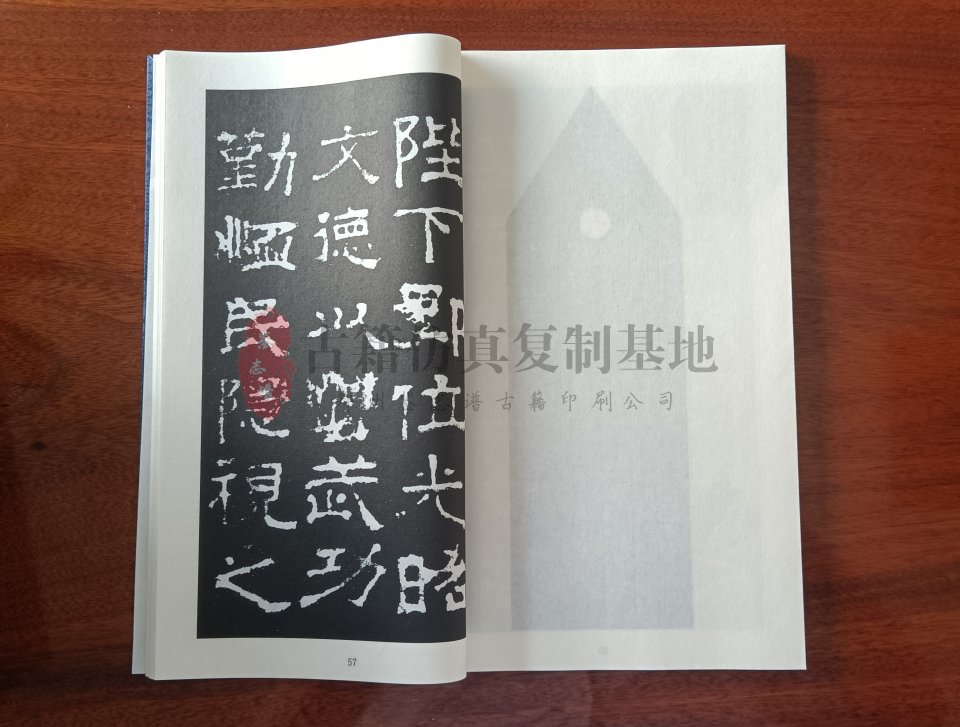 陛下即位光昭
文德以武功
勤恤民隱視之
57
古籍仿真复制基地
谱古籍印刷公司